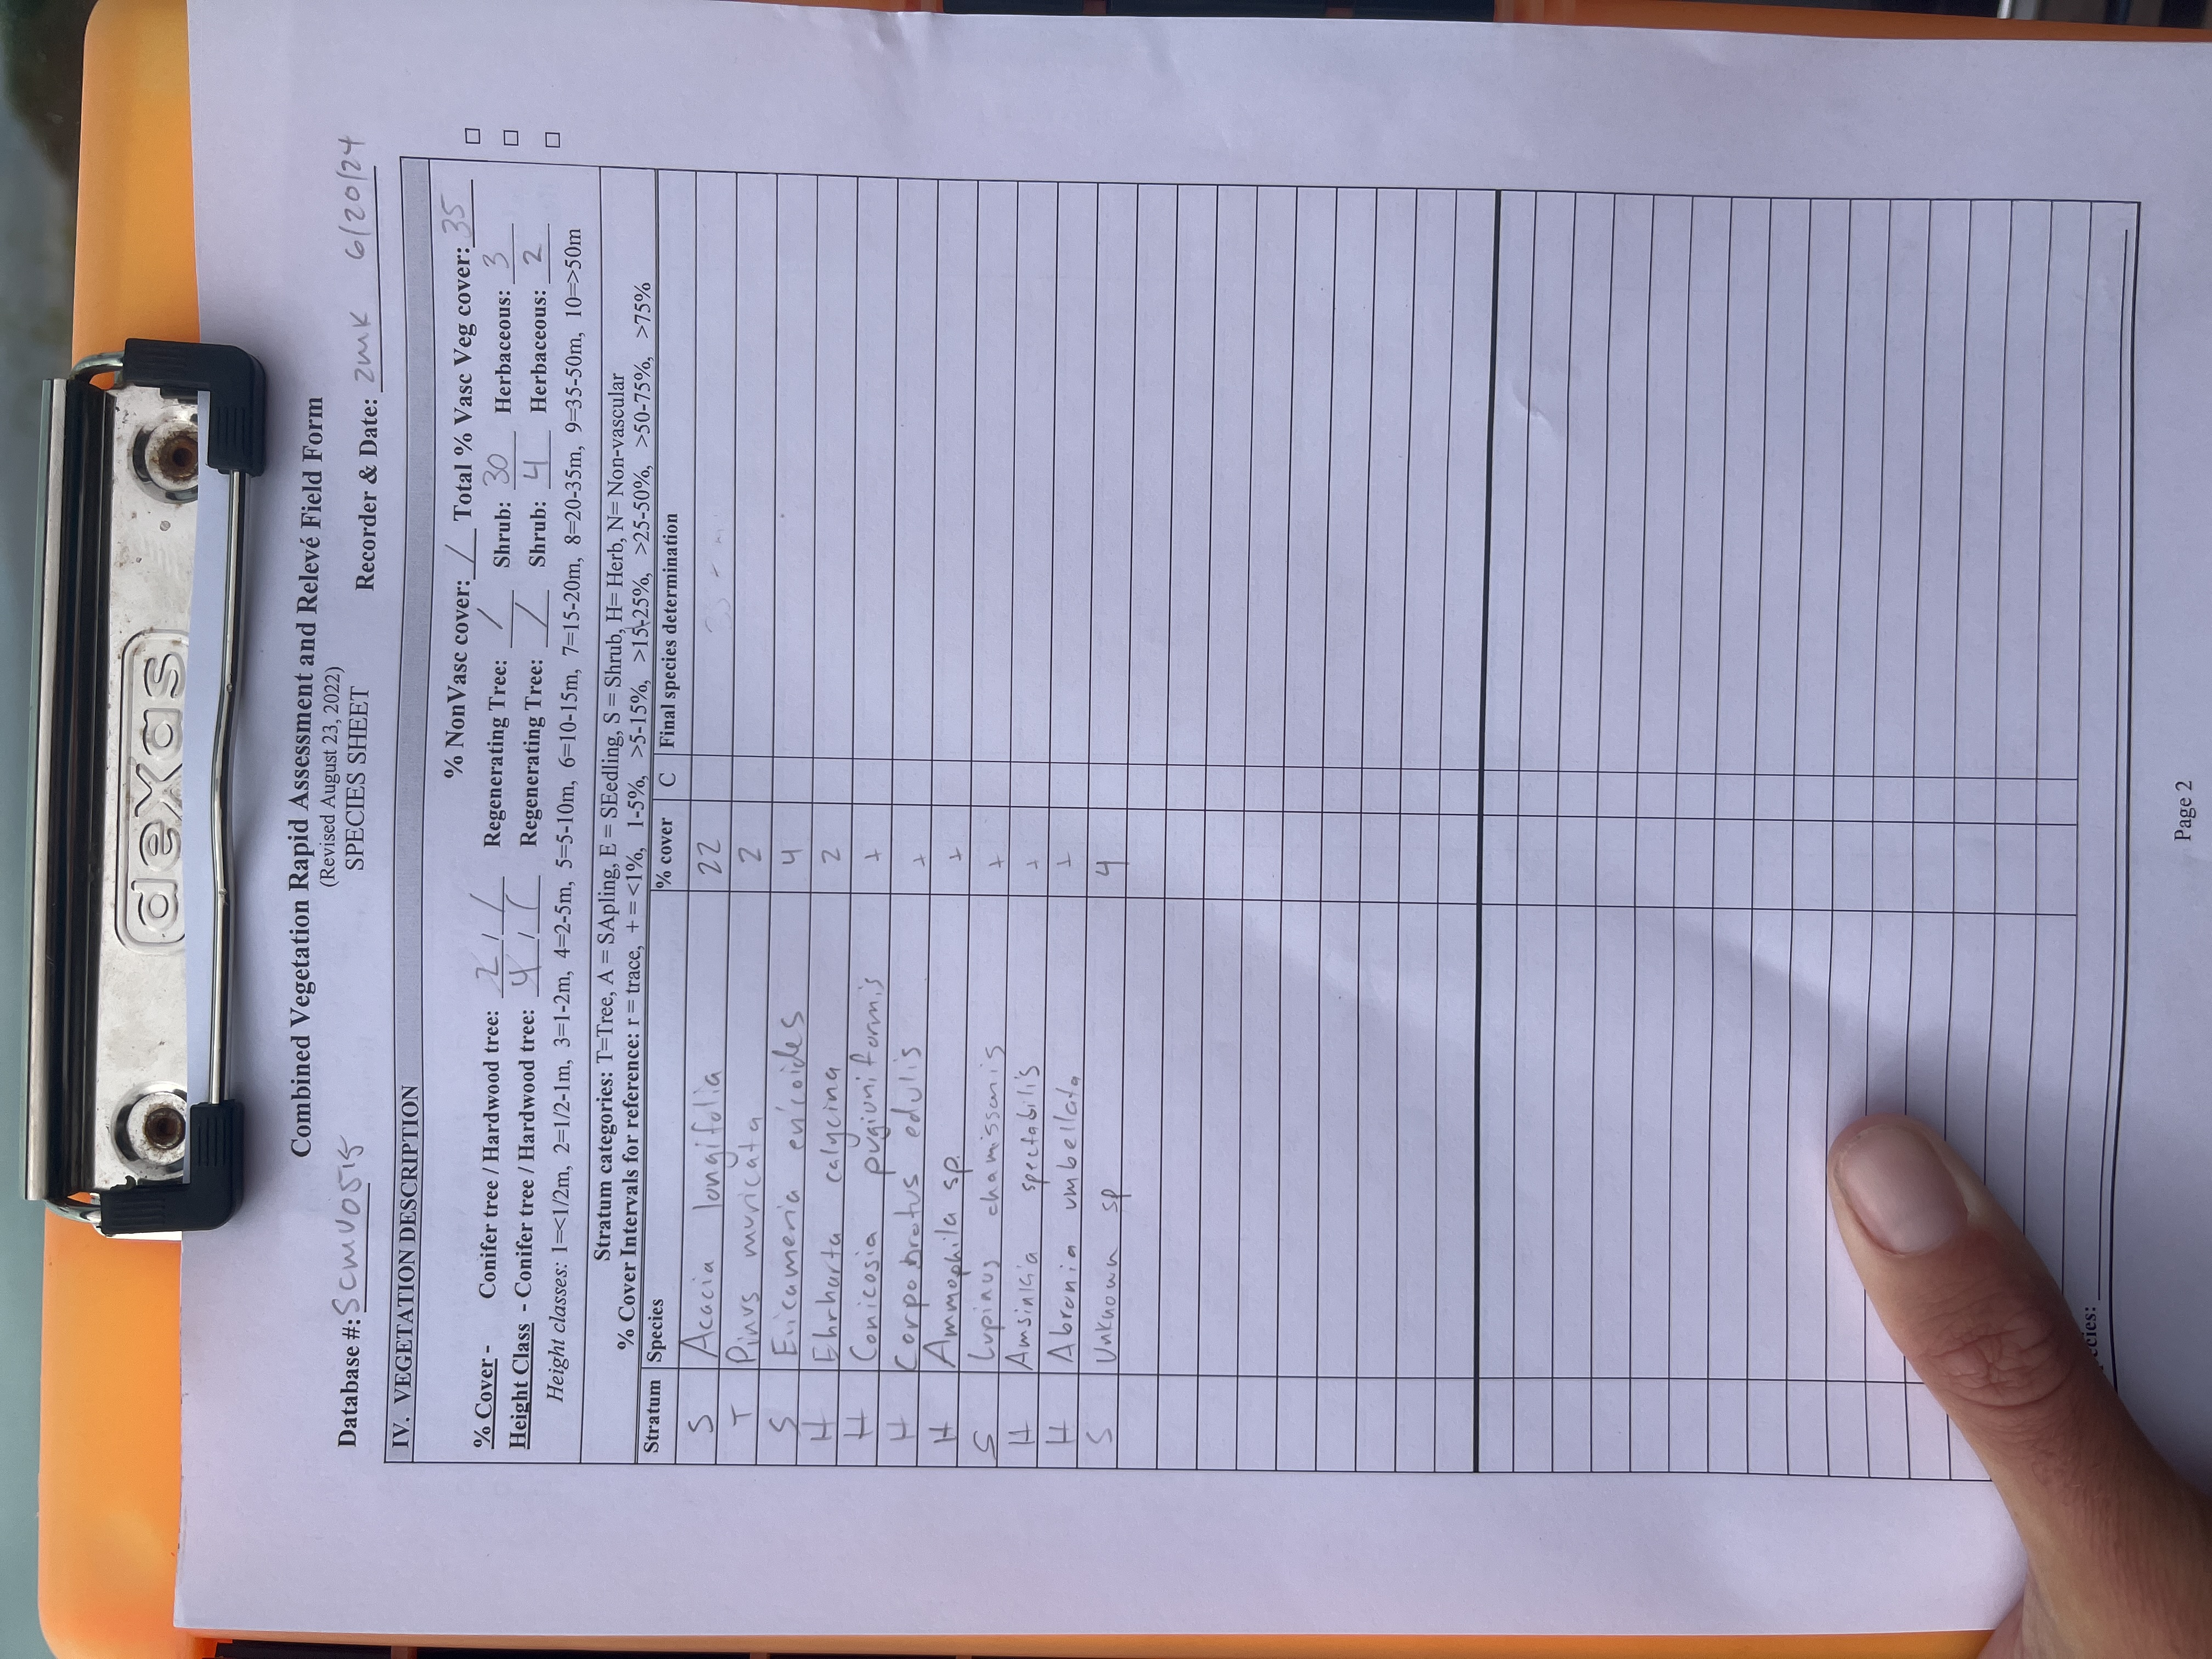 dexas
Combined Vegetation Rapid Assessment and Relevé Field Form
(Revised August 23, 2022)
SPECIES SHEET
Database #: SCMV0515 Recorder & Date: ZMK 6/20/24
IV. VEGETATION DESCRIPTION
% NonVasc cover: / Total % Vasc Veg cover: 35 □
% Cover - Conifer tree / Hardwood tree: 2 / / Regenerating Tree: / Shrub: 30 Herbaceous: 3 □
Height Class - Conifer tree / Hardwood tree: 4 / / Regenerating Tree: / Shrub: 4 Herbaceous: 2 □
Height classes: 1=<1/2m, 2=1/2-1m, 3=1-2m, 4=2-5m, 5=5-10m, 6=10-15m, 7=15-20m, 8=20-35m, 9=35-50m, 10=>50m
Stratum categories: T=Tree, A = SApling, E = SEedling, S = Shrub, H= Herb, N= Non-vascular
% Cover Intervals for reference: r = trace, + = <1%, 1-5%, >5-15%, >15-25%, >25-50%, >50-75%, >75%
Stratum Species % cover C Final species determination
S Acacia longifolia 22
T Pinus muricata 2
S Ericameria ericoides 4
H Ehrharta calycina 2
H Conicosia pugiuniformis +
H Corpobrotus edulis +
H Ammophila sp. +
S Lupinus chamissonis +
H Amsinkia spectabilis +
H Abronia umbellata +
S Unknown sp 4
cies:
Page 2